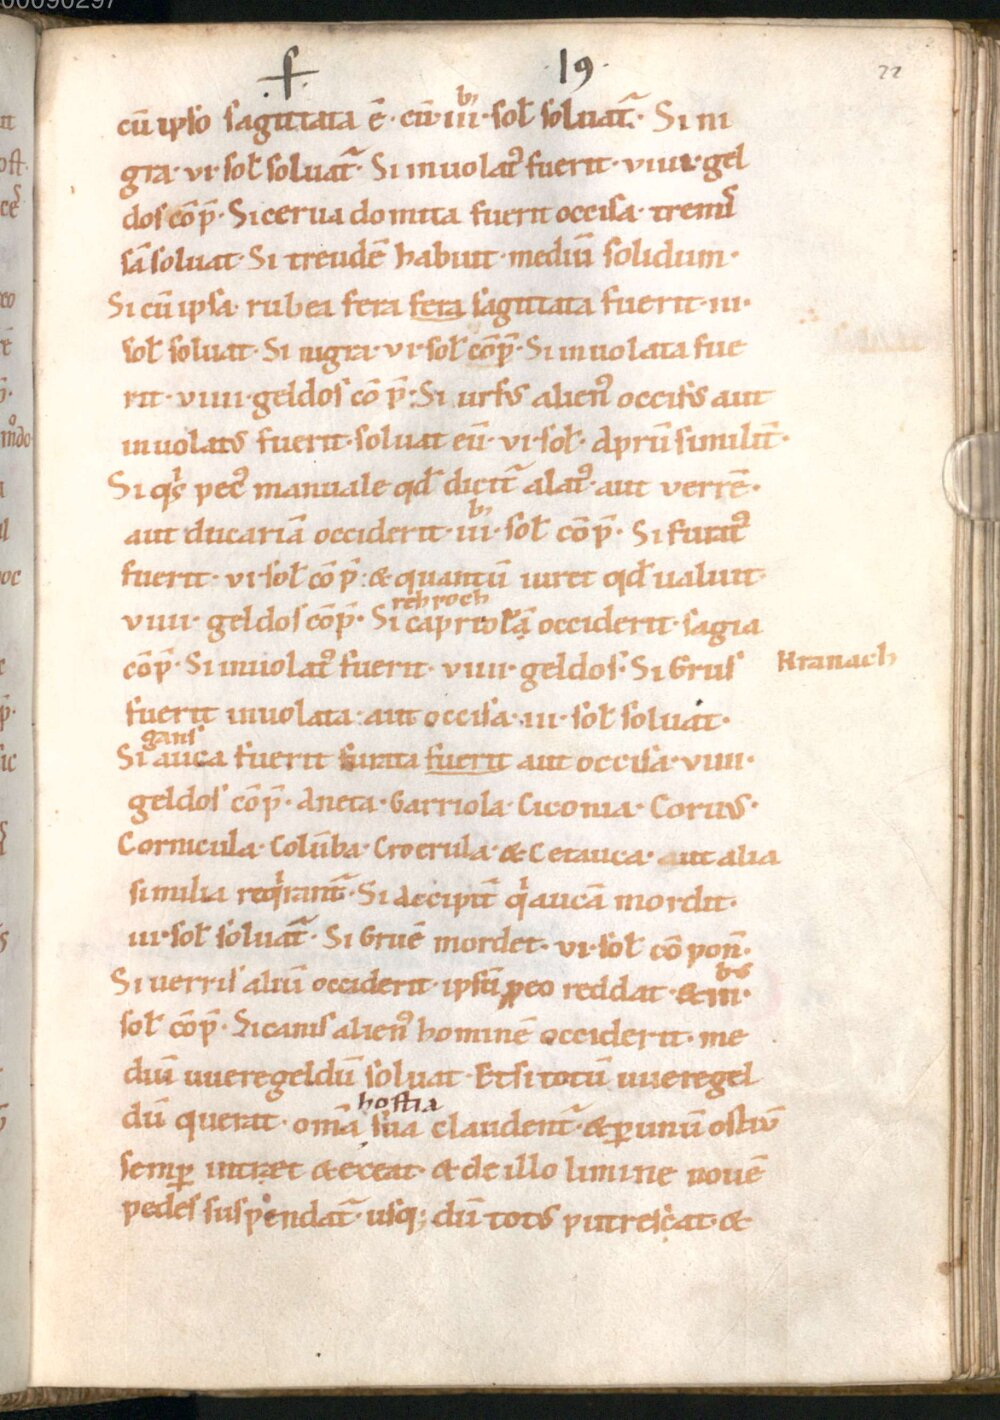 00090297
.f. .19. 22
cū ipso sagittata ē· cū iii b;· sol̄ soluat᷒· Si ni
gra· vi· sol̄ soluat᷒· Si inuolat᷒ fuerit· viiii· gel
dos cōp̄· Si cerua domita fuerit occisa· tremis
sā soluat· Si treudē habuit· mediū solidum·
Si cū ipsa· rubea fera fera sagittata fuerit· iii·
sol̄ soluat· Si nigra· vi· sol̄ cōp̄· Si inuolata fue
rit· viiii· geldos cō p̄· Si ursus alien᷒ occisus aut
inuolatus fuerit· soluat eū· vi· sol̄· Aprū similit᷒·
Si qis pec᷒ manuale qd̄ dicit᷒ alat᷒· aut verrē·
aut ducariā occiderit· iii b;· sol̄ cōp̄· Si furat᷒
fuerit· vi· sol̄ cō p̄· & quantū iuret qd̄ ualuit·
rehpoch
viiii· geldos cōp̄· Si capriolā occiderit· sagia
cōp̄· Si inuolat᷒ fuerit· viiii· geldos· Si Grus Kranach
fuerit inuolata· aut occisa· iii· sol̄ soluat·
gans
Si auca fuerit furata fuerit aut occisa· viiii·
geldos cōp̄· Aneta· Garriola· Ciconia· Coruus·
Cornicula· Colūba· Croerula· & Cetauca· aut alia
similia reqirant᷒· Si Accipit᷒ qi aucā mordit·
iii· sol̄ soluat᷒· Si Gruē mordet· vi· sol̄ cō pon̄·
Si uerris aliū occiderit· ipsū p eo reddat· & iii bus·
sol̄ cōp̄· Si canis alien᷒ hominē occiderit· me
diū uueregeldū soluat· Et si totū uueregel
hostia
dū querat· om̄a sua claudent᷒· & p unū ostiū
semp intret & exeat· & de illo limine nouē
pedes suspendat᷒· usq; dū totus putrescat· &